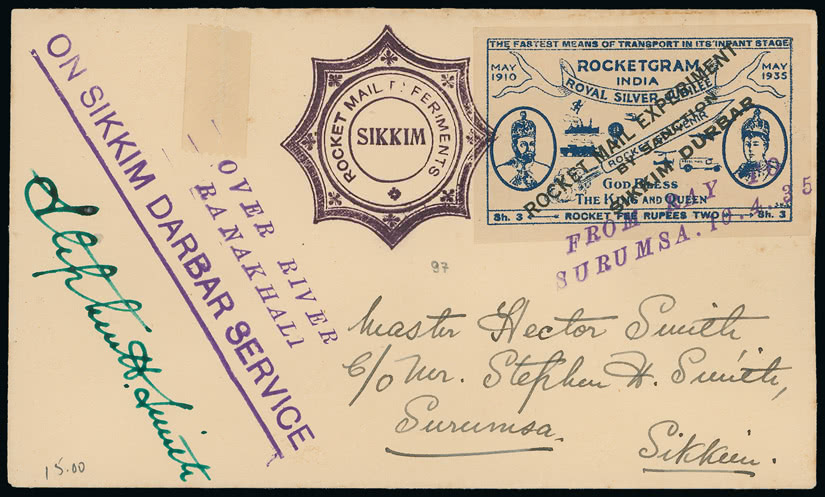 ON SIKKIM DARBAR SERVICE
Stephen H. Smith
15.00
OVER RIVER
RANAKHALI
ROCKET MAIL EXPERIMENTS
SIKKIM
97
THE FASTEST MEANS OF TRANSPORT IN ITS INFANT STAGE
MAY
1910
ROCKETGRAM
INDIA
ROYAL SILVER JUBILEE
MAY
1935
ROCKET
GOD BLESS
THE KING AND QUEEN
Sh. 3 ROCKET FEE RUPEES TWO Sh. 3
ROCKET MAIL EXPERIMENT
BY SANCTION
SIKKIM DURBAR
FROM RAY TO
SURUMSA. 10.4.35
Master Hector Smith
C/o Mr. Stephen H. Smith,
Surumsa.
Sikkim.